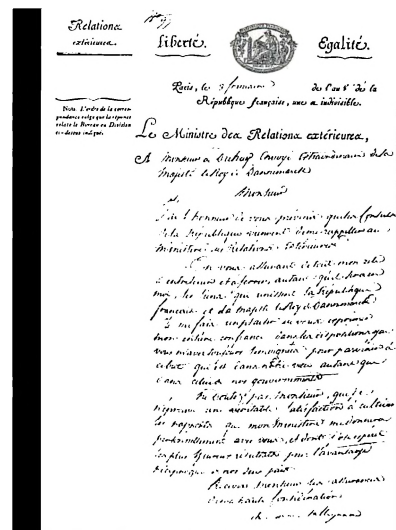 Relations
extérieures.
Liberté. Egalité.
Paris, le 3 frimaire de l'an 8e de la
République française, une et indivisible.
Nota. L'ordre de la corres-
pondance exige que la réponse
relate le Bureau ou Division
ci-dessus indiqué.
Le Ministre des Relations extérieures,
A Monsieur Envoyé Extraordinaire de Sa
Majesté le Roy de Dannemarck
Monsieur
J'ai l'honneur de vous prévenir que les Consuls
de la République viennent de me rappeller au
Ministère des Relations Extérieures
En vous assurant de tout mon zèle
à entretenir et à fermer, autant qu'il sera en
moi, les liens qui unissent la République
française et Sa Majesté le Roy de Dannemarck
Je me fais un plaisir en vous exprimant
mon entière confiance dans les dispositions que
vous m'avez toujours témoignées pour parvenir à
ce but qui est dans notre vœu autant que
dans celui de nos gouvernements
Ne doutez pas, Monsieur, que je
n'éprouve une véritable satisfaction à cultiver
les rapports que mon Ministère me donnera
avec vous, et dont j'ose espérer
les plus heureux résultats pour l'avantage
réciproque de nos deux pays
Recevez, Monsieur les assurances
de ma haute Considération
Ch. Mau. Talleyrand